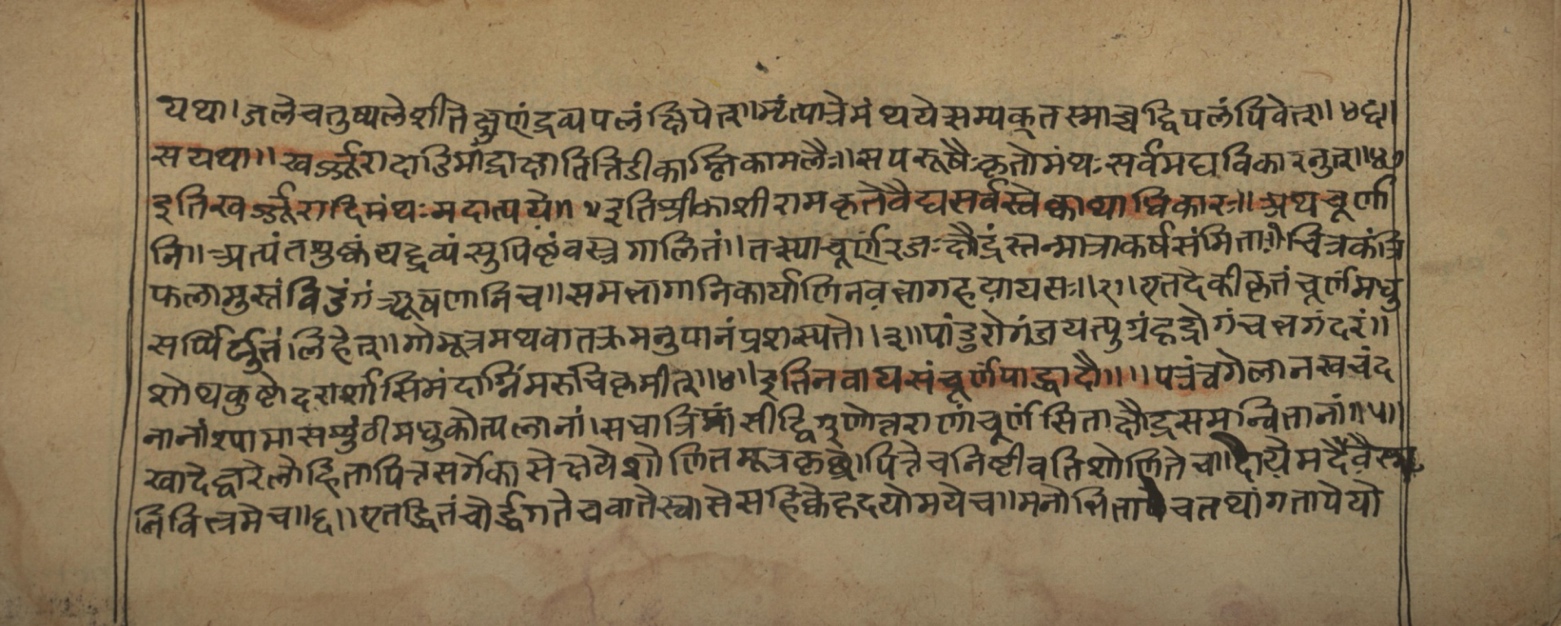 यथा।जलेचतुष्पलेशीतेक्षुण्णंद्रव्यपलंक्षिपेत्॥मृत्पात्रेमंथयेसम्यक्तस्माच्चद्विपलंपिवेत्॥४६॥
सयथा॥खर्ज्जूरादाडिमांद्राक्षातिंतिडीकाम्लिकामलैः॥सपरूषैःकृतोमंथःसर्वमद्यविकारनुत्॥४७
इतिखर्ज्जूरादिमंथःमदात्पये॥४इतिश्रीकाशीरामकृतेवैद्यसर्वस्वेक्वाथाधिकारः॥अथचूर्णा
नि॥अत्पंतशुष्कंयद्द्रव्यंसुपिष्टंवस्त्रगालितं॥तस्याचूर्णंरजःक्षौद्रंस्तन्मात्राकर्षसंमिता॥१चित्रकंत्रि
फलामुस्तंविडंगंत्र्यूषणानिच॥समभागानिकार्याणिनवभागहयायसः॥२॥एतदेकीकृतंचूर्णंमधु
सर्पिर्य्युतंलिहेत्॥गोमूत्रमथवातक्रमनुपानंप्रशस्यते॥३॥पांडुरोगंजयत्पुग्रंहृद्रोगंचभगंदरं॥
शोथकुष्टोदरार्शांसिमंदाग्निमरुचिकृमीत्॥४॥इतिनवायसंचूर्णंपाड्वादौ॥॥पत्रंत्वगेलानखचंद
नानांश्यामासशुंठीमधुकोत्पलानां।सधात्रिमांसीद्विगुणोत्तराणांचूर्णंसिताक्षौद्रसमन्वितानां॥५॥
खादेद्वरेलोहितापित्तसर्गेकासेक्षयेशोणितमूत्रकृछ्रे।पित्तेचनिष्टीवतिशोणितेचा।दाये
निवित्त्वमेच॥६॥एतद्धितंचोर्द्धगतेचवातेस्वासेसहिक्केहृदयोमयेच॥मनोभितापेचतथांगतापेयो